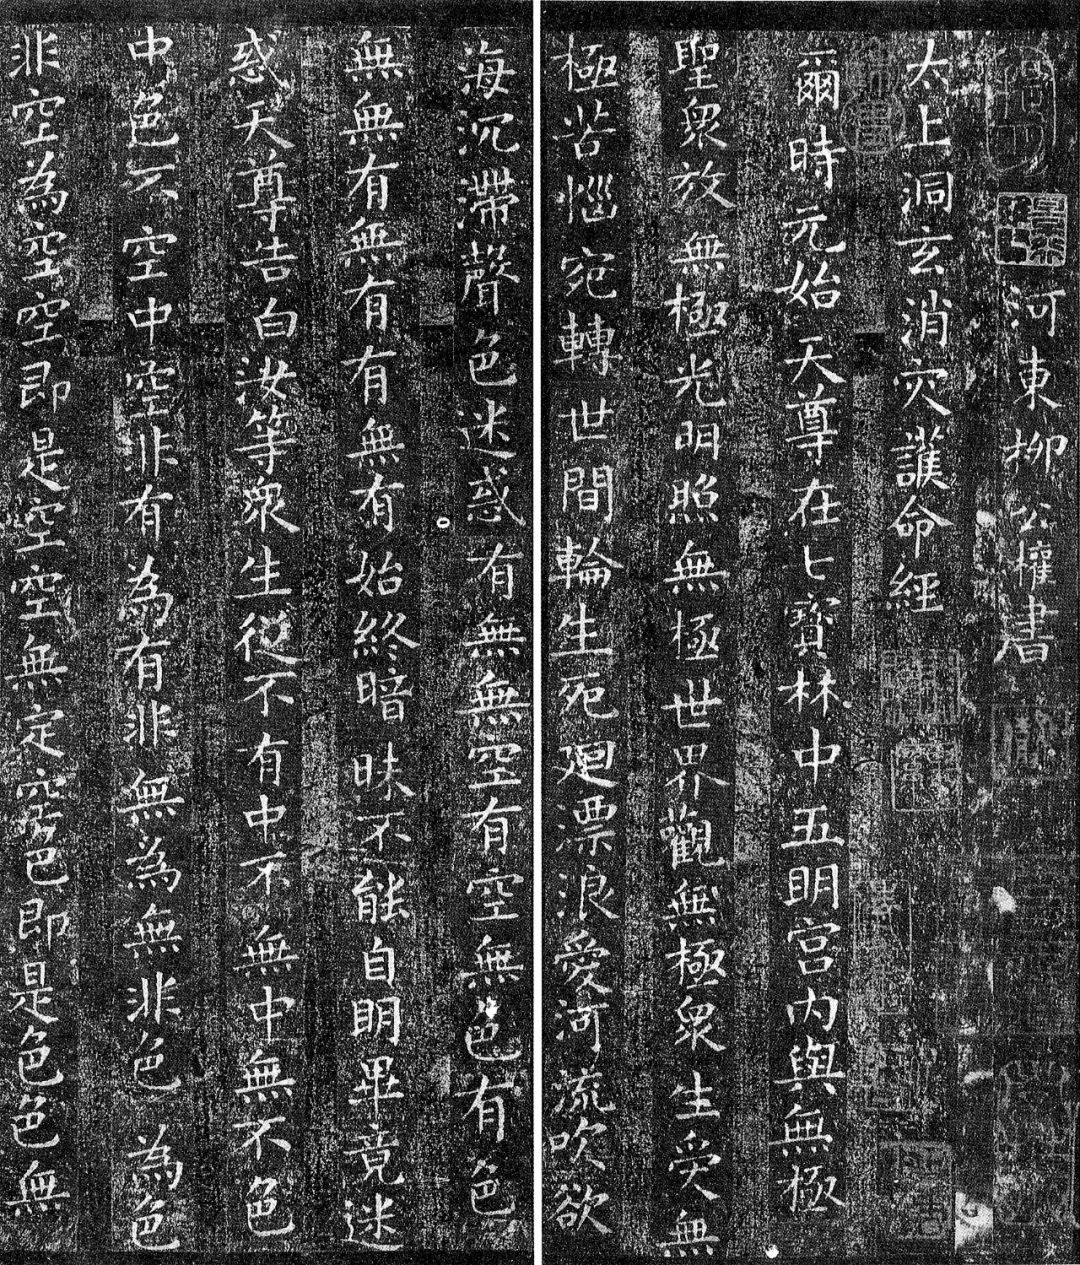 河東柳公權書
太上洞玄消灾護命經
爾時元始天尊在七寶林中五明宮内與無極
聖衆放無極光明照無極世界觀無極衆生受無
極苦惱宛轉世間輪生死迴漂浪愛河流吹欲
海沉滯聲色迷惑有無無空有空無色有色
無無有無有有無有始終暗昧不能自明畢竟迷
惑天尊告白汝等衆生從不有中不無中無不色
中色不空中空非有為有非無為無非色為色
非空為空空即是空空無定空色即是色色無